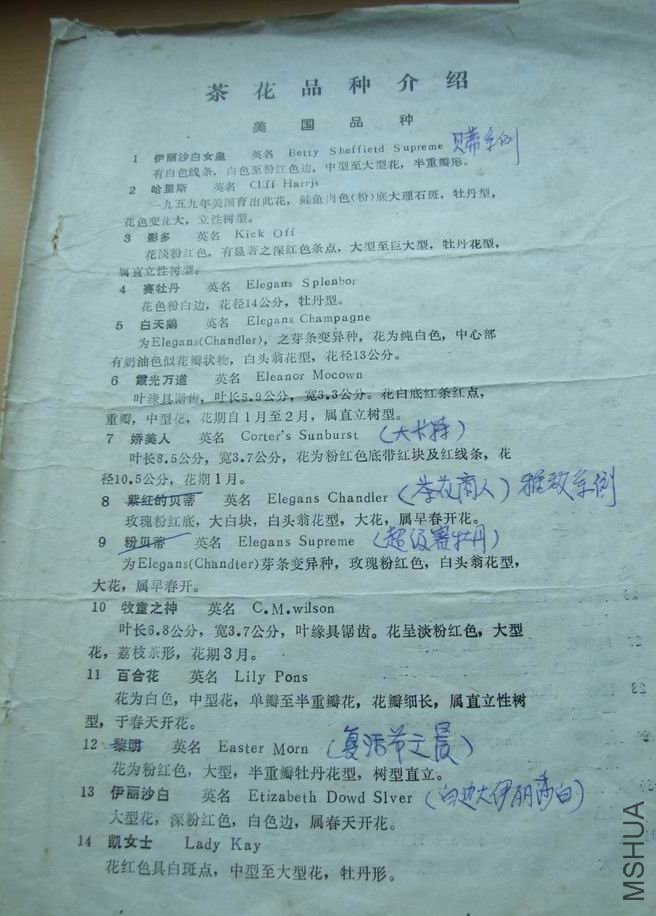 茶花品种介绍
美国品种
1 伊丽沙白女皇 英名 Betty Sheffietd Supreme
有白色线条，白色至粉红色边，中型至大型花，半重瓣形。
2 哈里斯 英名 Cliff Harrjs
一九五九年美国育出此花，鲑鱼肉色(粉)底大理石斑，牡丹型，
花色变化大，立性树型。
3 影多 英名 Kick Off
花淡粉红色，有显著之深红色条点，大型至巨大型，牡丹花型，
属直立性树型。
4 赛牡丹 英名 Elegans Splenbor
花色粉白边，花径14公分，牡丹型。
5 白天鹅 英名 Elegans Champagne
为Elegans(Chandler)，之芽条变异种，花为纯白色，中心部
有奶油色似花瓣状物，白头翁花型，花径13公分。
6 霞光万道 英名 Eleanor Mocown
叶缘具锯齿，叶长5.9公分，宽3.3公分。花白底红条红点，
重瓣，中型花，花期自1月至2月，属直立树型。
7 娇美人 英名 Corter's Sunburst (大卡特)
叶长8.5公分，宽3.7公分，花为粉红色底带红块及红线条，花
径10.5公分，花期1月。
8 紫红的贝蒂 英名 Elegans Chandler (茶花商人) 系例
玫瑰粉红底，大白块，白头翁花型，大花，属早春开花。
9 粉贝蒂 英名 Elegans Supreme (超级赛牡丹)
为Elegans(Chandter)芽条变异种，玫瑰粉红色，白头翁花型，
大花，属早春开。
10 牧童之神 英名 C.M.wilson
叶长6.8公分，宽3.7公分，叶缘具锯齿。花呈淡粉红色，大型
花，荔枝茶形，花期3月。
11 百合花 英名 Lily Pons
花为白色，中型花，单瓣至半重瓣花，花瓣细长，属直立性树
型，于春天开花。
12 黎明 英名 Easter Morn (复活节之晨)
花为粉红色，大型，半重瓣牡丹花型，树型直立。
13 伊丽沙白 英名 Etizabeth Dowd Slver (白边大伊丽莎白)
大型花，深粉红色，白色边，属春天开花。
14 凯女士 Lady Kay
花红色具白斑点，中型至大型花，牡丹形。
MSHUA